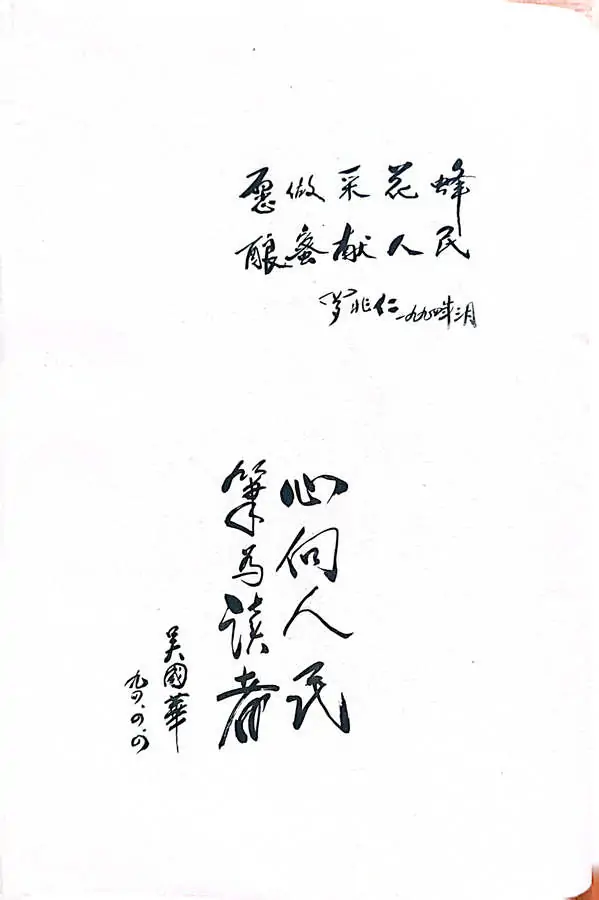 愿做采花蜂
酿蜜献人民
罗兆仁 一九九四年三月
心向人民
筆为读者
吴國華
九四.四.四